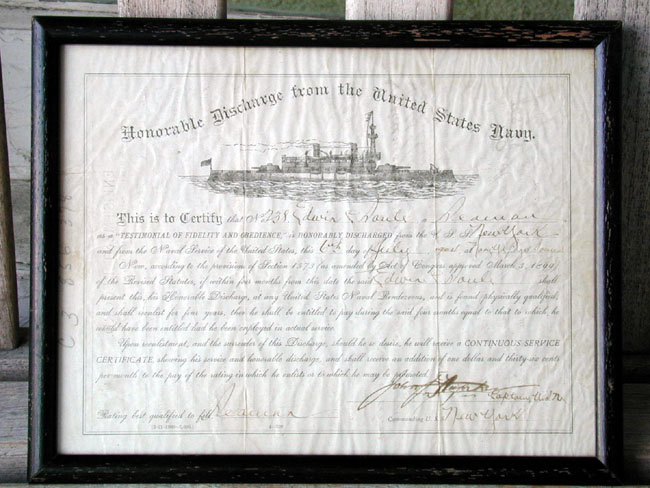 Honorable Discharge from the United States Navy.
This is to Certify that No 238 Edwin Soule a Seaman
as a "TESTIMONIAL OF FIDELITY AND OBEDIENCE," is HONORABLY DISCHARGED from the U. S. S. New York
and from the Naval Service of the United States, this 6th day of July at
Now, according to the provisions of Section 1573 (as amended by Act of Congress approved March 3, 1899)
of the Revised Statutes, if within four months from this date the said Edwin Soule shall
present this, his Honorable Discharge, at any United States Naval Rendezvous, and is found physically qualified,
and shall reenlist for four years, then he shall be entitled to pay during the said four months equal to that to which he
would have been entitled had he been employed in actual service.
Upon reenlistment, and the surrender of this Discharge, should he so desire, he will receive a CONTINUOUS-SERVICE
CERTIFICATE, showing his service and honorable discharge, and shall receive an addition of one dollar and thirty-six cents
per month to the pay of the rating in which he enlists or to which he may be promoted.
John
Captain, U.S.N.
Rating best qualified to fill Seaman
Commanding U. S. S. New York